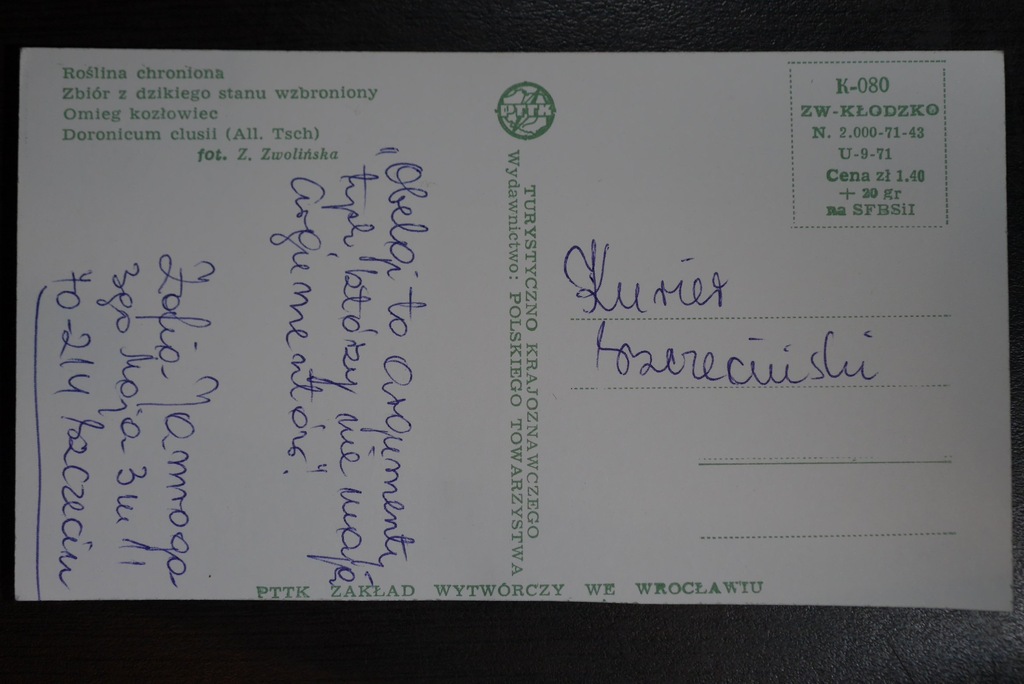 Roślina chroniona
Zbiór z dzikiego stanu wzbroniony
Omieg kozłowiec
Doronicum clusii (All. Tsch)
fot. Z. Zwolińska
"Obelgi to argumenty
tych którzy nie mają
argumentów".
Zofia Jamroga
3go Maja 3 m 11
70-214 Szczecin
PTTK
TURYSTYCZNO KRAJOZNAWCZEGO
Wydawnictwo: POLSKIEGO TOWARZYSTWA
K-080
ZW-KŁODZKO
N. 2.000-71-43
U-9-71
Cena zł 1.40
+ 20 gr
na SFBSiI
Kurier
Szczeciński
PTTK ZAKŁAD WYTWÓRCZY WE WROCŁAWIU